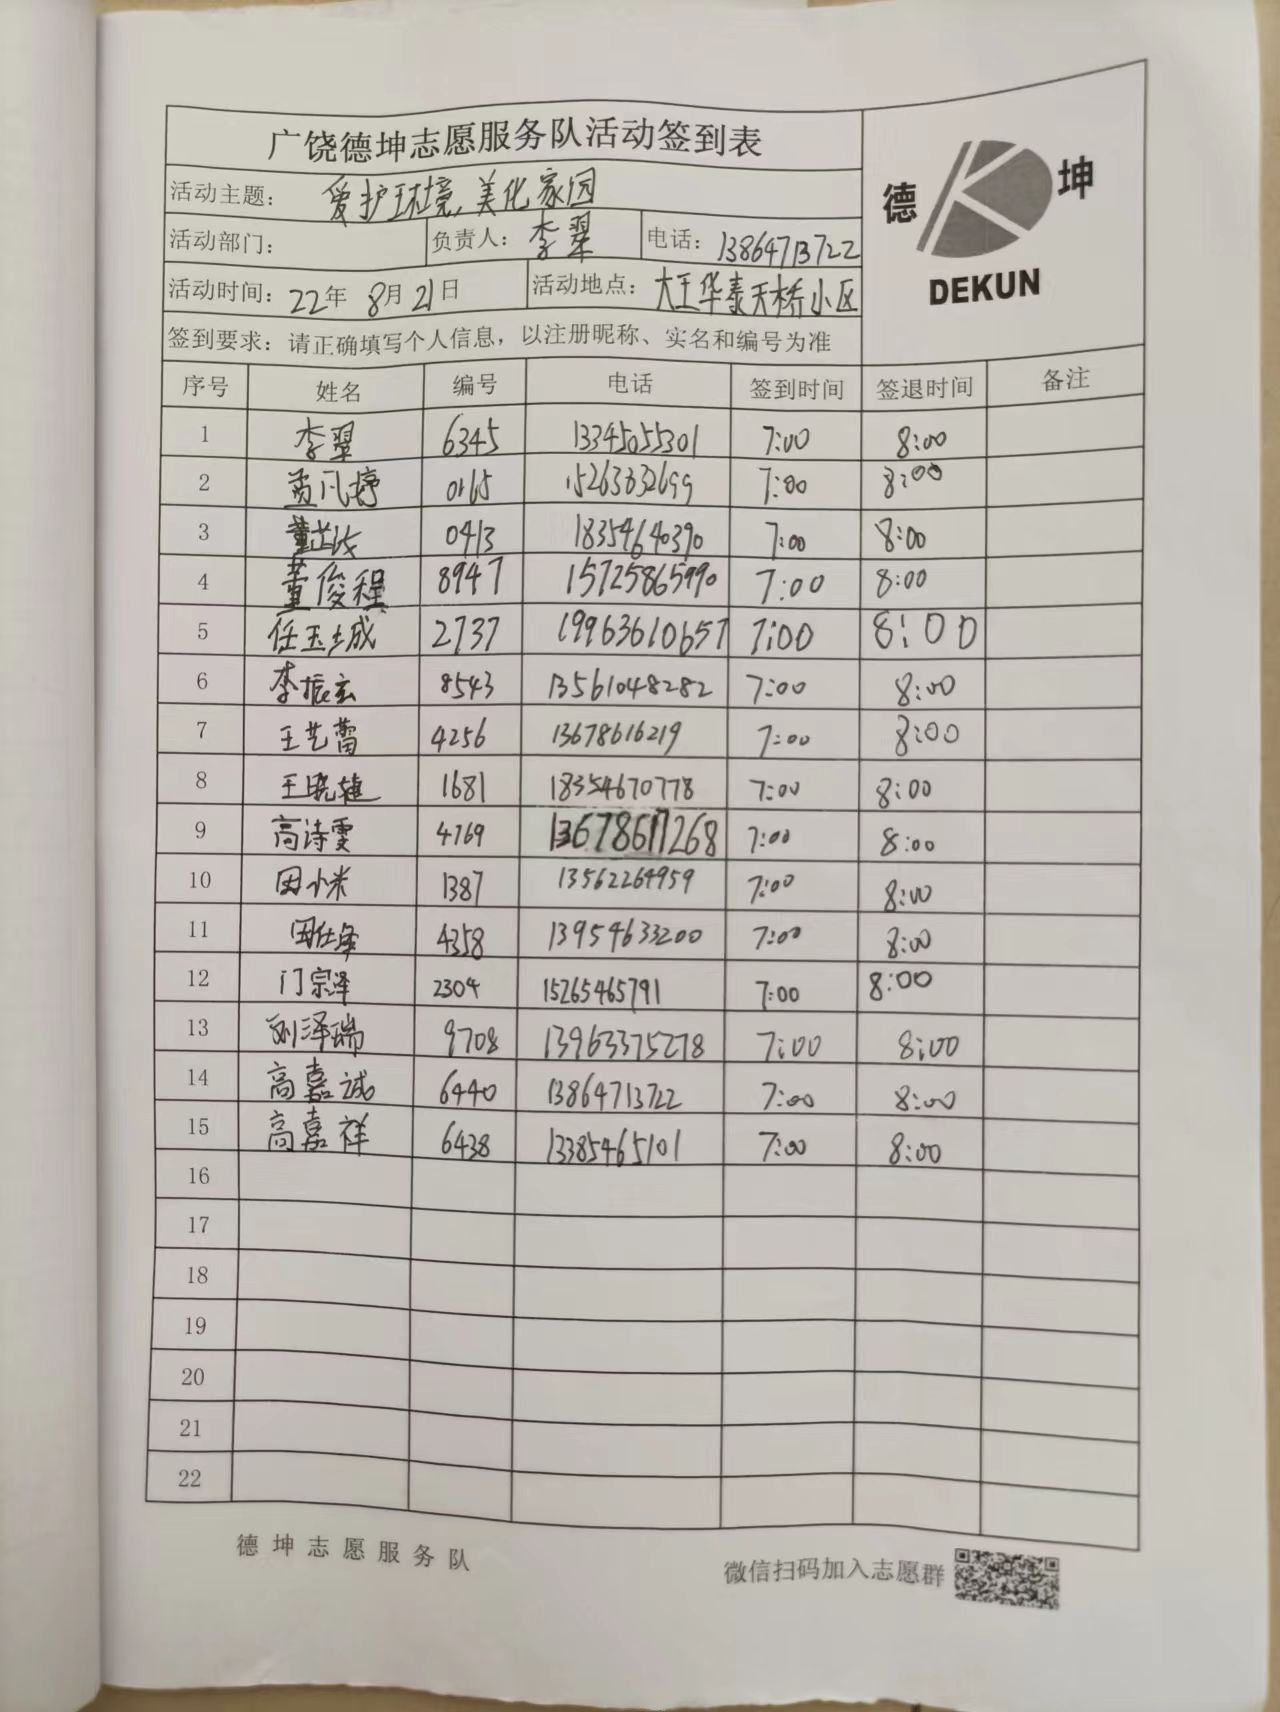 广饶德坤志愿服务队活动签到表
德 坤
DEKUN
活动主题： 爱护环境,美化家园
活动部门： 负责人：李翠 电话：13864713722
活动时间：22年 8月 21日 活动地点：大王华泰天桥小区
签到要求：请正确填写个人信息，以注册昵称、实名和编号为准
序号 姓名 编号 电话 签到时间 签退时间 备注
1 李翠 6345 13345055301 7:00 8:00
2 0165 15263832699 7:00 8:00
3 0413 18354640390 7:00 8:00
4 董俊程 8947 15725865990 7:00 8:00
5 任玉城 2737 19963610657 7:00 8:00
6 李振玄 8543 13561048282 7:00 8:00
7 王艺蕾 4256 13678616219 7:00 8:00
8 王晓雄 1681 18354670778 7:00 8:00
9 高诗雯 4769 13678617268 7:00 8:00
10 田小米 1387 13562264959 7:00 8:00
11 田仕泽 4358 13954633200 7:00 8:00
12 门宗泽 2304 15265465791 7:00 8:00
13 刘泽瑞 9708 13963375278 7:00 8:00
14 高嘉诚 6440 13864713722 7:00 8:00
15 高嘉祥 6438 13385465101 7:00 8:00
16
17
18
19
20
21
22
德坤志愿服务队
微信扫码加入志愿群